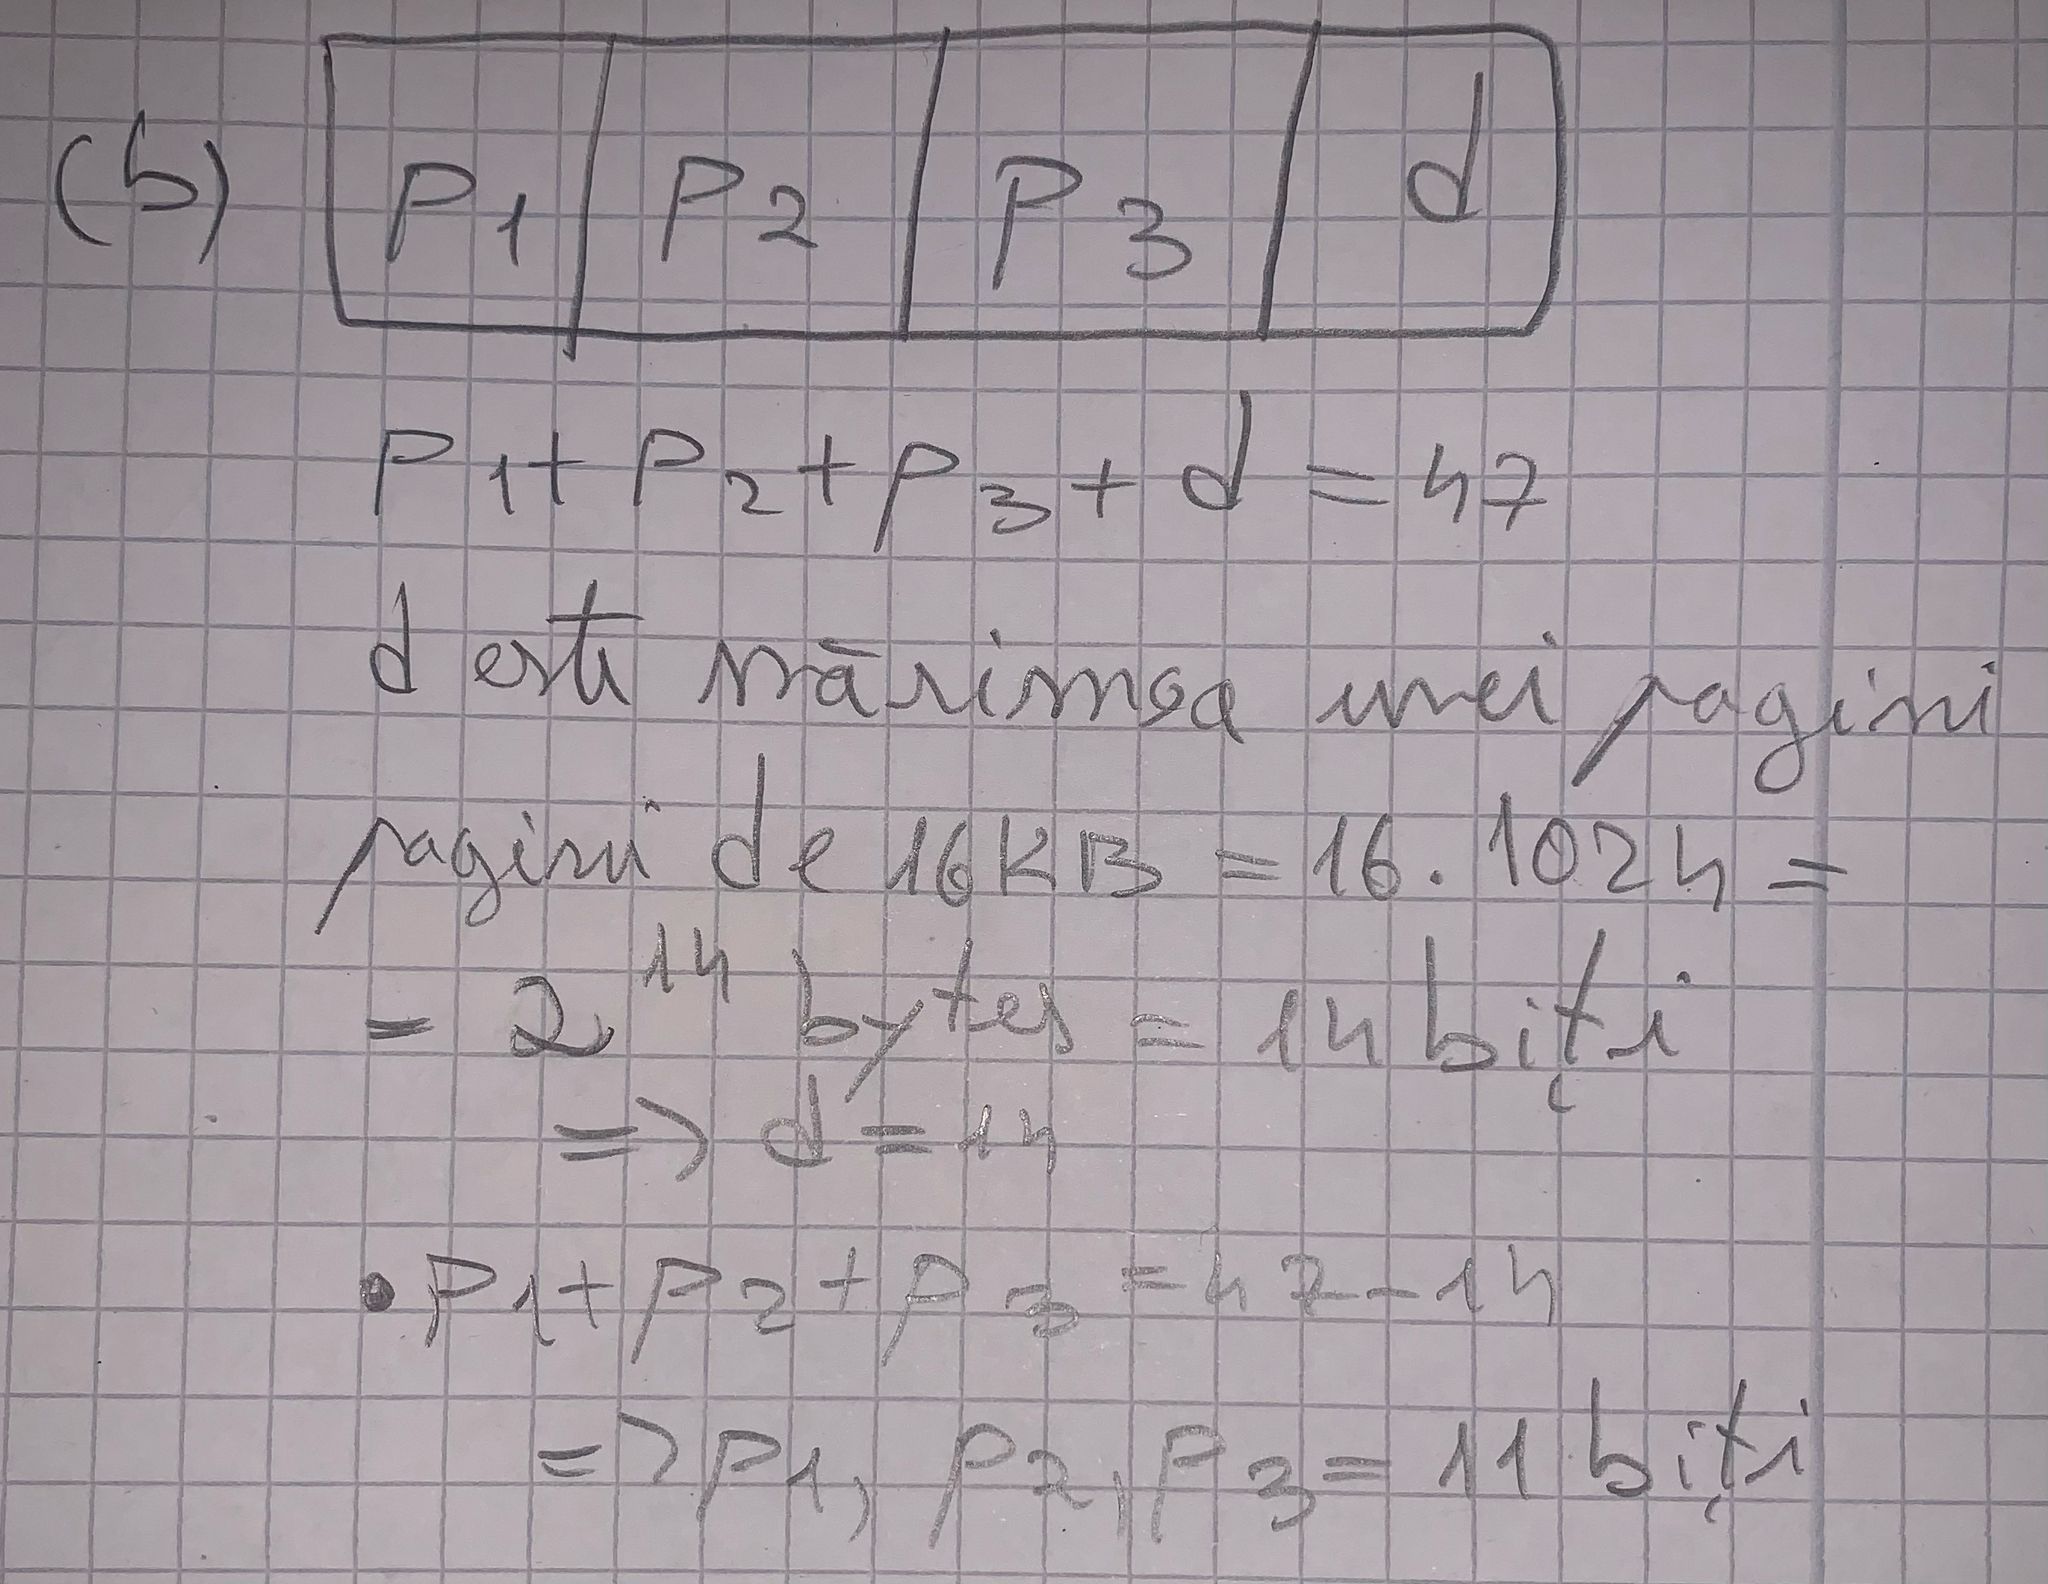 (b) P1 P2 P3 d
P1 + P2 + P3 + d = 47
d este mărimea unei pagini
pagini de 16KB = 16 . 1024 =
= 2^14 bytes = 14 biți
=> d = 14
• P1 + P2 + P3 = 47 - 14
=> P1, P2, P3 = 11 biți